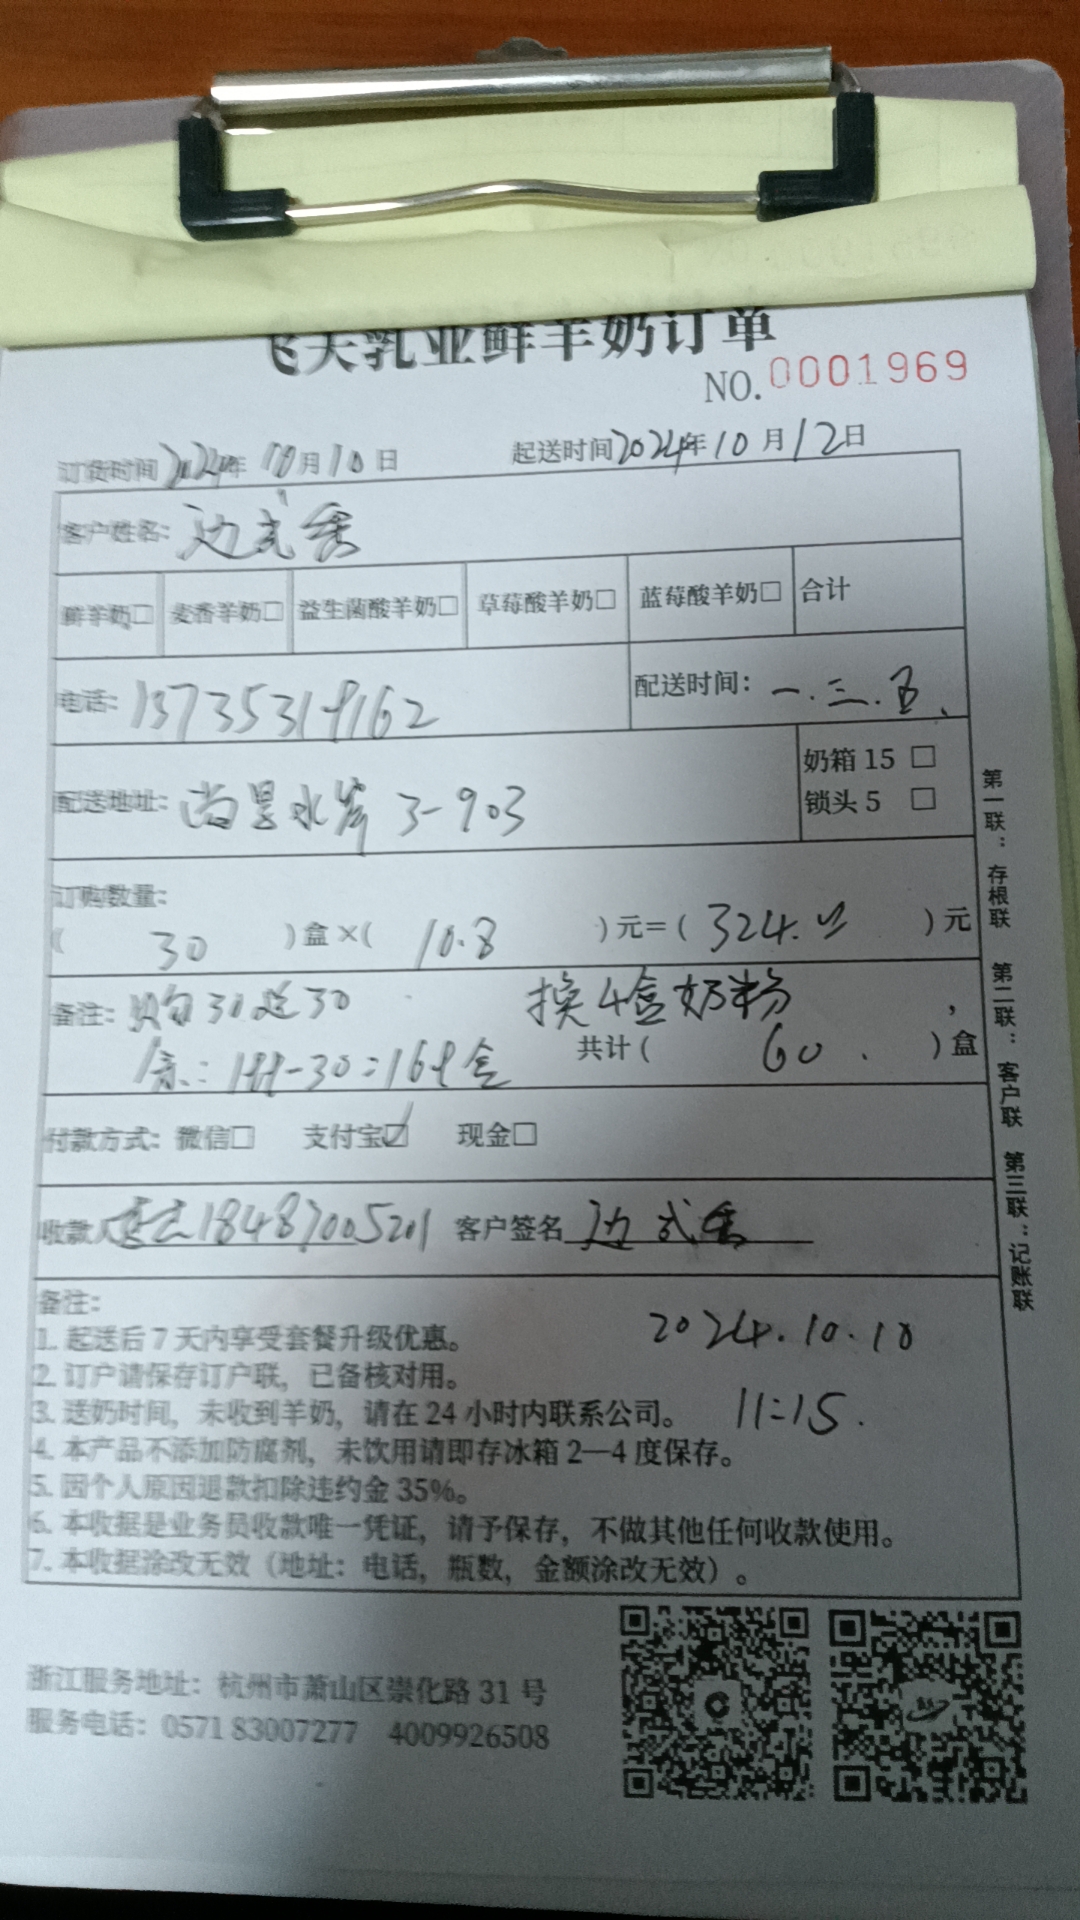 飞天乳业鲜羊奶订单
NO.0001969
订货时间2024年10月10日 起送时间2024年10月12日
客户姓名:边式秀
鲜羊奶□ 麦香羊奶□ 益生菌酸羊奶□ 草莓酸羊奶□ 蓝莓酸羊奶□ 合计
电话: 配送时间:一.三.五、
配送地址:尚景水岸 3-903
奶箱 15 □
锁头 5 □
订购数量:
( 30 )盒×( 10.8 )元=( 324. )元
备注:购30送30 换4盒奶粉
共计( 60. )盒
付款方式:微信□ 支付宝☑ 现金□
收款人 18487005201 客户签名 边式秀
备注:
2024.10.10
1. 起送后 7 天内享受套餐升级优惠。
2. 订户请保存订户联,已备核对用。
3. 送奶时间,未收到羊奶,请在 24 小时内联系公司。 11:15.
4. 本产品不添加防腐剂,未饮用请即存冰箱 2—4 度保存。
5. 因个人原因退款扣除违约金 35%。
6. 本收据是业务员收款唯一凭证,请予保存,不做其他任何收款使用。
7. 本收据涂改无效(地址:电话,瓶数,金额涂改无效)。
第一联:存根联 第二联:客户联 第三联:记账联
浙江服务地址:杭州市萧山区崇化路 31 号
服务电话:0571 83007277 4009926508